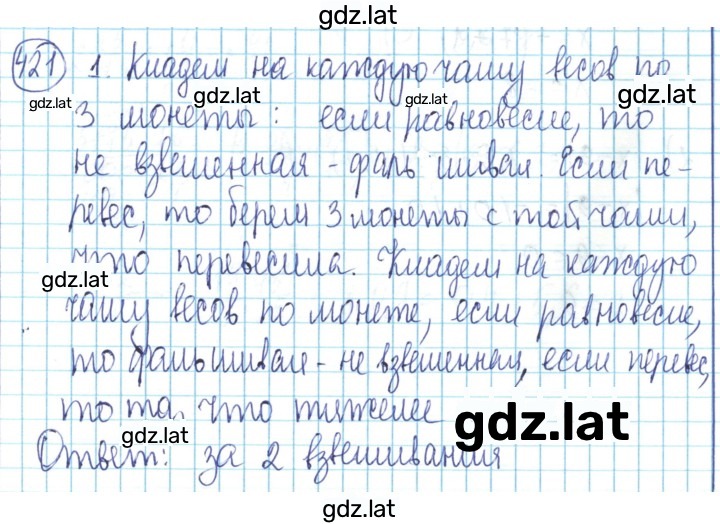 gdz.lat
421 1. Кладем на каждую чашу весов по
gdz.lat gdz.lat gdz.lat
3 монеты: если равновесие, то
не взвешенная - фальшивая. Если пе-
ревес, то берем 3 монеты с той чаши,
что перевесила. Кладем на каждую
gdz.lat
чашу весов по монете, если равновесие,
то фальшивая - не взвешенная, если перевес,
то та, что тяжелее
gdz.lat gdz.lat
Ответ: за 2 взвешивания
gdz.lat